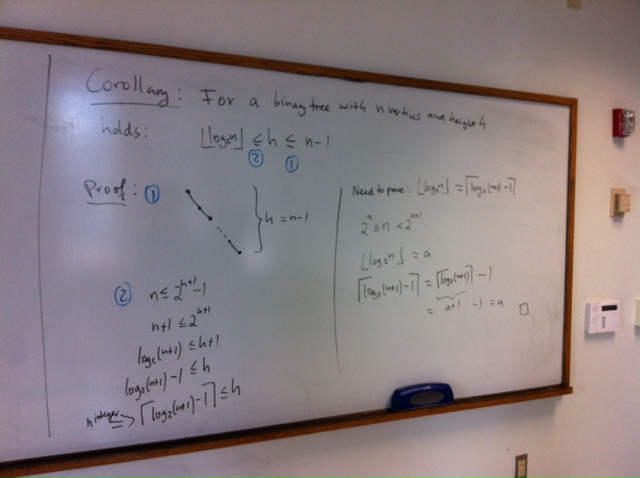 Corollary: For a binary tree with n vertices and height h
holds: ⌊log₂n⌋ ≤ h ≤ n-1
② ①
Proof: ①
h = n-1
② n ≤ 2^(h+1) -1
n+1 ≤ 2^(h+1)
log₂(n+1) ≤ h+1
log₂(n+1) -1 ≤ h
h integer ⇒ ⌈log₂(n+1) -1⌉ ≤ h
Need to prove: ⌊log₂n⌋ = ⌈log₂(n+1) -1⌉
2^a ≤ n < 2^(a+1)
⌊log₂n⌋ = a
⌈log₂(n+1) -1⌉ = ⌈log₂(n+1)⌉ -1
= a+1 -1 = a □